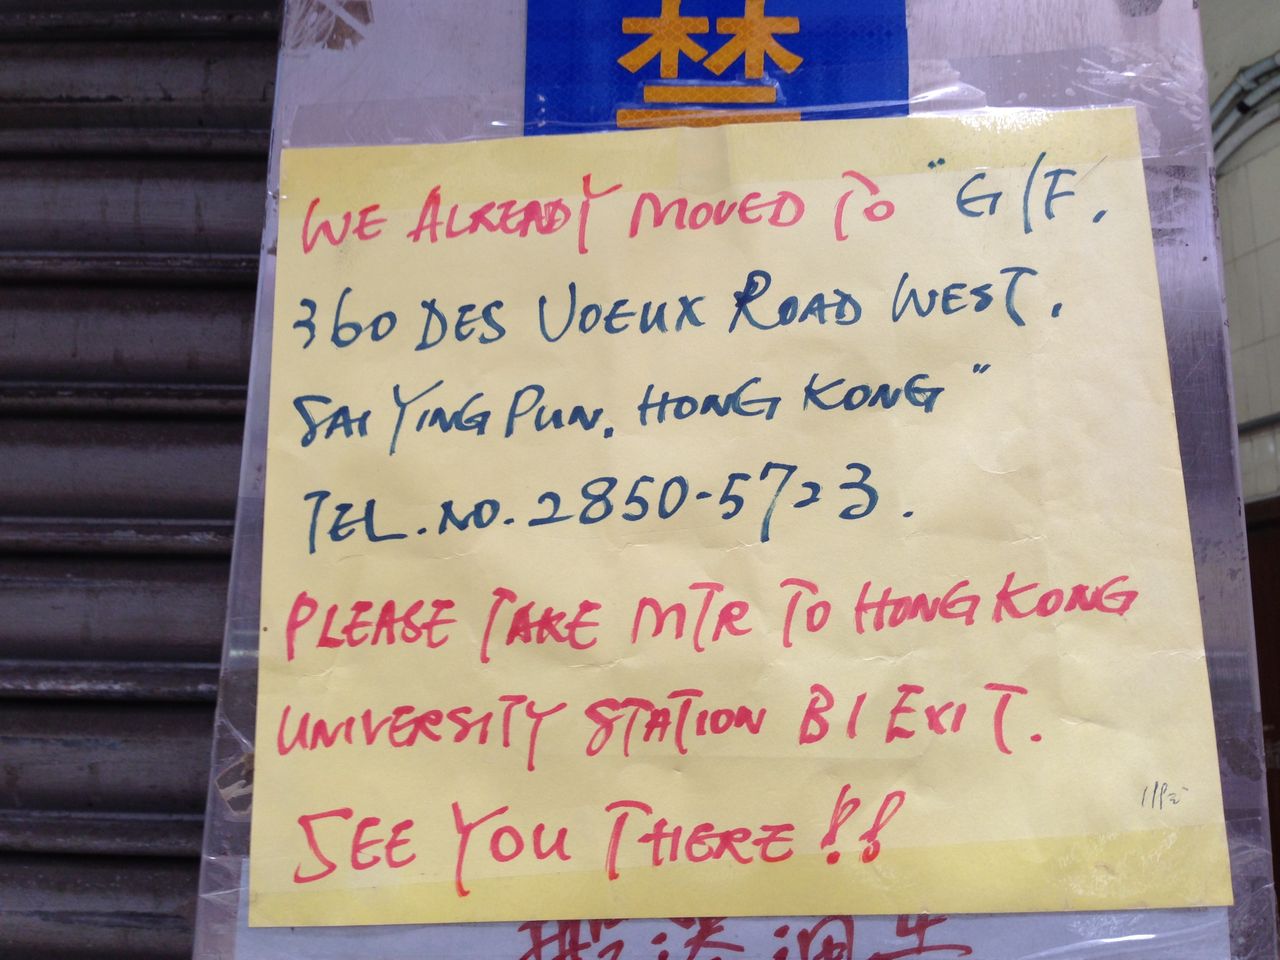 禁
WE ALREADY MOVED TO "G/F,
360 DES VOEUX ROAD WEST,
SAI YING PUN, HONG KONG"
TEL. NO. 2850-5723.
PLEASE TAKE MTR TO HONG KONG
UNIVERSITY STATION B1 EXIT.
SEE YOU THERE!!